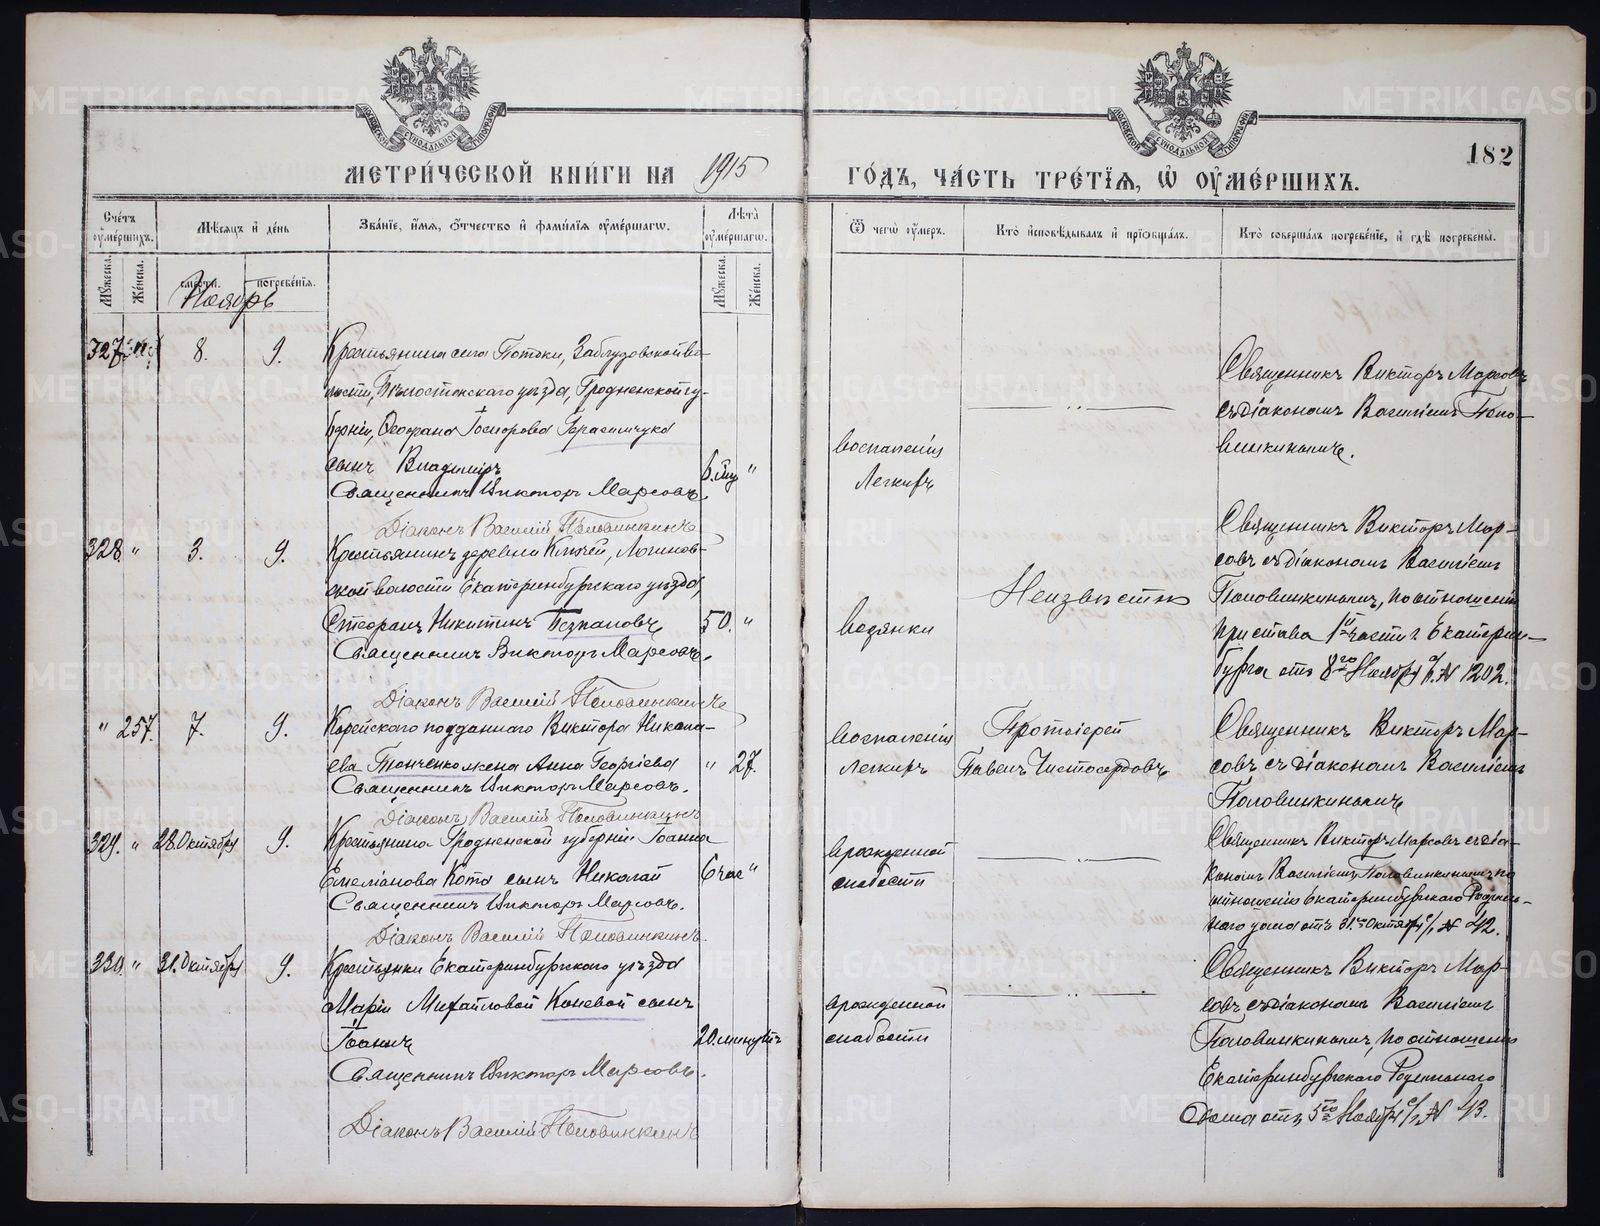 МЕТРИ́ЧЕСКОЙ КНИ́ГИ НА 1915 ГО́ДЪ, ЧА́СТЬ ТРЕ́ТІѦ, Ѡ ОУМЕ́РШИХЪ.
182
Сче́тъ оуме́ршихъ.
Мѣ́сяцъ и де́нь
Зва́нїе, и́мѧ, ѻ́тчество и фами́лїѧ оуме́ршагѡ.
Лѣта̀ оуме́ршагѡ.
Ѿ чегѡ̀ оу́меръ.
Кто̀ исповѣ́дывалъ и прїѡбща́лъ.
Кто̀ соверша́лъ погребе́нїе, и гдѣ̀ погребены̀.
Мꙋ́жеска.
Же́нска.
сме́рти.
погребе́нїѧ.
Мꙋ́жеска.
Же́нска.
Ноябрь
327. "
8.
9.
Крестьянина села Потоки, Заблудовской во-
лости, Бѣлостокскаго уѣзда, Гродненской гу-
берніи, Ѳеофана Григорьева Герасимчука
сынъ Владиміръ
Священникъ Викторъ Марсовъ.
Діаконъ Василій Половинкинъ
"
воспаленія
Легкихъ
Священникъ Викторъ Марсовъ
съ діакономъ Василіемъ Поло-
винкинымъ.
328. "
3.
9.
Крестьянинъ деревни Ключей, Логинов-
ской волости Екатеринбургскаго уѣзда,
Стефанъ Никитинъ
Священникъ Викторъ Марсовъ.
Діаконъ Василій Половинкинъ
50. "
водянки
Неизвѣстно
Священникъ Викторъ Мар-
совъ съ діакономъ Василіемъ
Половинкинымъ, по отношенію
пристава 1й части г. Екатерин-
бурга отъ 8го Ноября с/г. № 1202.
" 257.
7.
9.
Корейскаго подданнаго Виктора Никола-
ева жена Анна Георгіева
Священникъ Викторъ Марсовъ.
Діаконъ Василій Половинкинъ
" 27.
воспаленія
Легкихъ
Протоіерей
Павелъ Чистосердовъ
Священникъ Викторъ Мар-
совъ съ діакономъ Василіемъ
Половинкинымъ
329. "
28. Октября
9.
Крестьянина Гродненской губерніи Іоанна
Емеліанова Кота сынъ Николай
Священникъ Викторъ Марсовъ.
Діаконъ Василій Половинкинъ.
6 час "
врожденной
слабости
Священникъ Викторъ Марсовъ съ діа-
кономъ Василіемъ Половинкинымъ по
отношенію Екатеринбургскаго Родиль-
наго дома отъ 31го Октября с/г № 42.
330. "
31. Октября
9.
Крестьянки Екатеринбургскаго уѣзда
Маріи Михайловой Коневой сынъ
Іоаннъ
Священникъ Викторъ Марсовъ.
Діаконъ Василій Половинкинъ
20. минутъ
врожденной
слабости
Священникъ Викторъ Мар-
совъ съ діакономъ Василіемъ
Половинкинымъ, по отношенію
Екатеринбургскаго Родильнаго
Дома отъ 5го Ноября с/г № 43.
METRIKI.GASO-URAL.RU